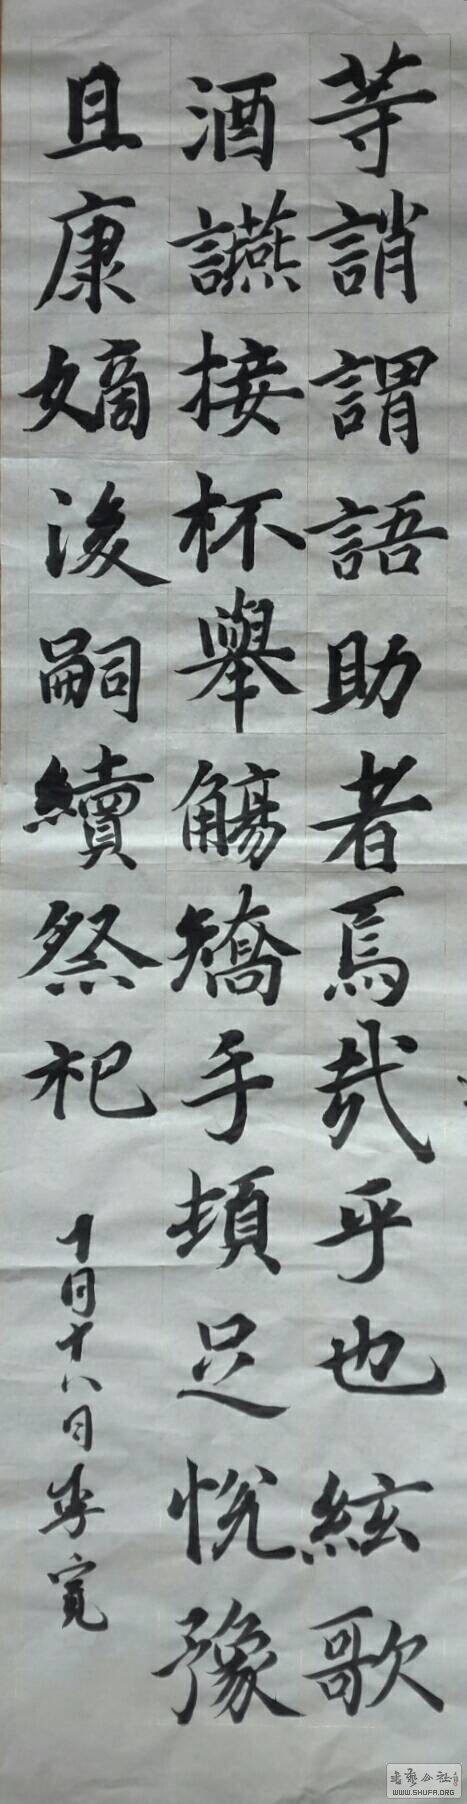 等誚謂語助者焉哉乎也絃歌
酒讌接杯舉觴矯手頓足悅豫
且康嫡後嗣續祭祀
十月十八日李寬
書藝公社
WWW.SHUFA.ORG